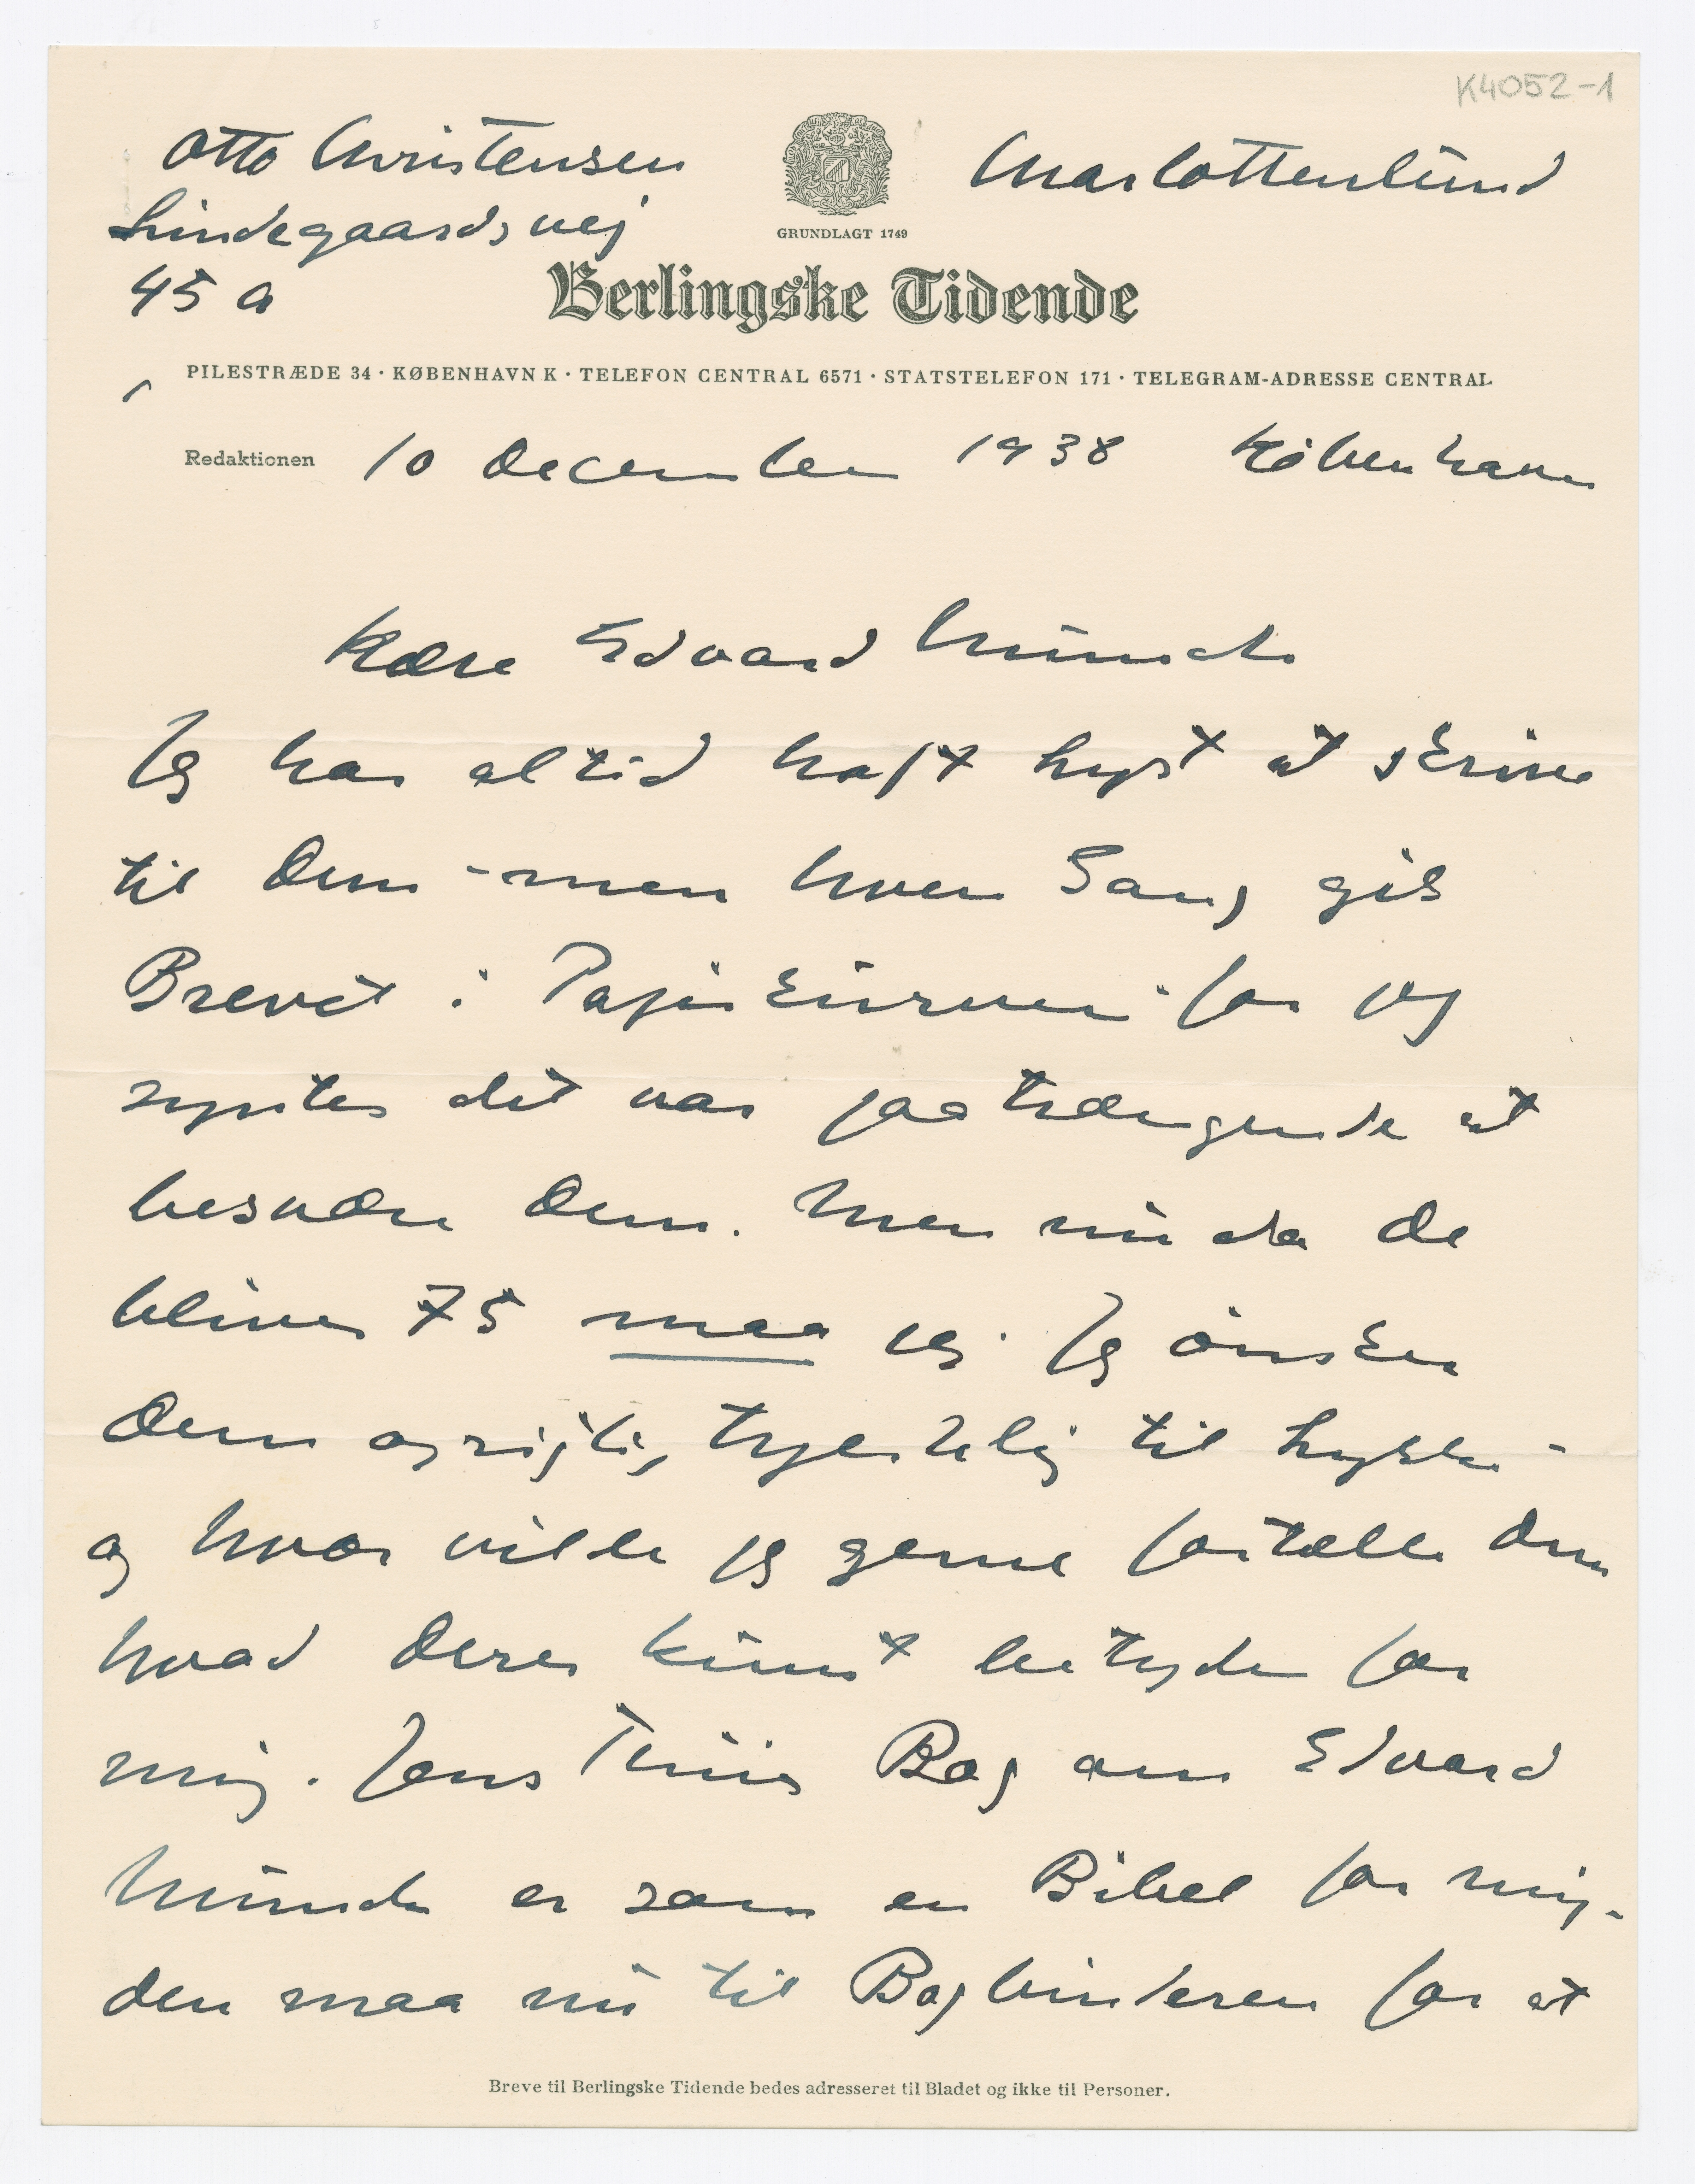 K4052-1
Otto Christensen
Charlottenlund
Lindegaardsvej
45 a
GRUNDLAGT 1749
Berlingske Tidende
PILESTRÆDE 34 · KØBENHAVN K · TELEFON CENTRAL 6571 · STATSTELEFON 171 · TELEGRAM-ADRESSE CENTRAL
Redaktionen 10 December 1938 København
Kære Edvard Munch
Jeg har altid haft Lyst at skrive
til Dem – men hver Gang gik
Brevet i Papirkurven – for jeg
syntes det var paatrængende at
besvære Dem. Men nu da De
bliver 75 maa jeg. Jeg ønsker
Dem oprigtig hjertelig til Lykke –
og hvor vilde jeg gerne fortælle Dem
hvad Deres Kunst betyder for
mig. Jens Thiis Bog om Edvard
Munch er som en Bibel for mig –
den maa nu til Bogbinderen for at
Breve til Berlingske Tidende bedes adresseret til Bladet og ikke til Personer.